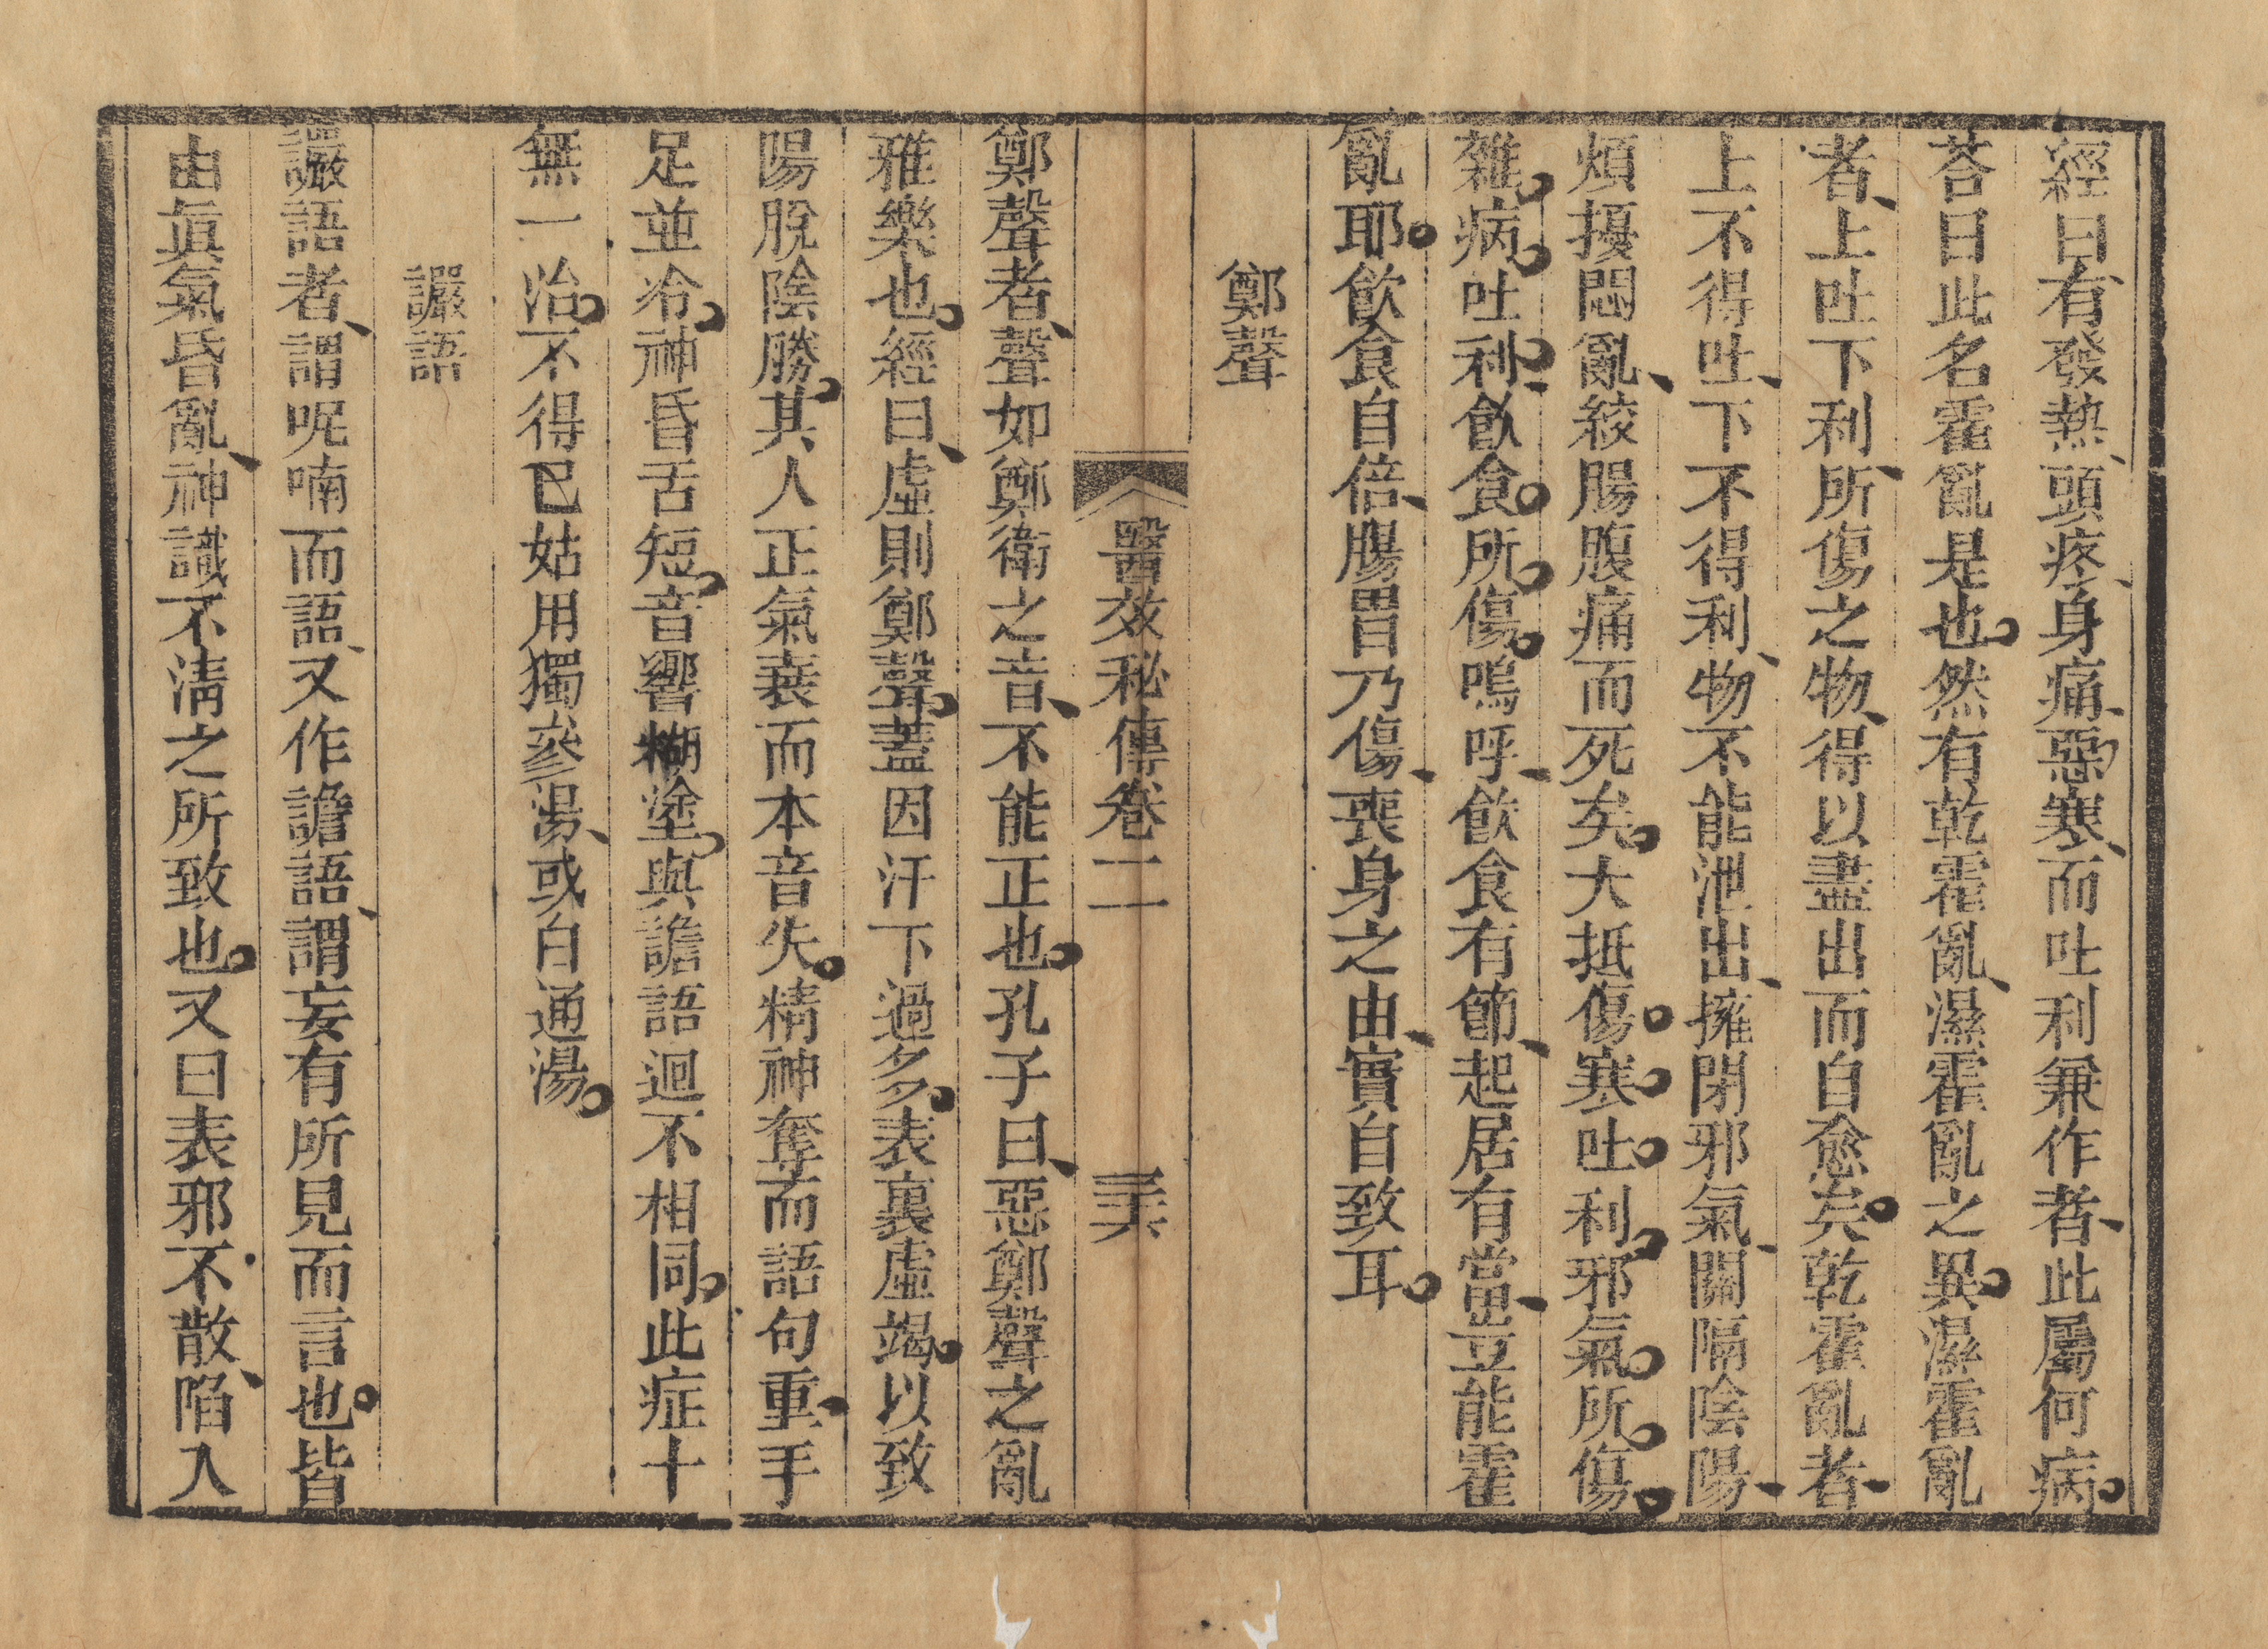 經曰、有發熱、頭疼、身痛、惡寒、而吐利兼作者、此屬何病。
荅曰此名霍亂是也。然有乾霍亂、濕霍亂之異。濕霍亂
者、上吐下利、所傷之物、得以盡出而自愈矣。乾霍亂者、
上不得吐、下不得利、物不能泄出、擁閉邪氣、關隔陰陽、
煩擾悶亂、絞腸腹痛而死矣。大抵傷寒吐利。邪氣所傷。
雜病。吐利、飲食所傷。嗚呼、飲食有節、起居有當、豈能霍
亂耶。飲食自倍、腸胃乃傷、喪身之由、實自致耳。
鄭聲
醫效秘傳卷二 三六
鄭聲者、聲如鄭衛之音、不能正也。孔子曰、惡鄭聲之亂
雅樂也。經曰、虛則鄭聲。蓋因汗下過多。表裏虛竭。以致
陽脫陰勝。其人正氣衰而本音失。精神奪而語句重、手
足並冷。神昏舌短。音響糊塗。與譫語迥不相同。此症十
無一治。不得已姑用獨參湯、或白通湯。
讝語
讝語者、謂呢喃而語、又作譫語、謂妄有所見而言也。皆
由眞氣昏亂、神識不清之所致也。又曰表邪不散、陷入